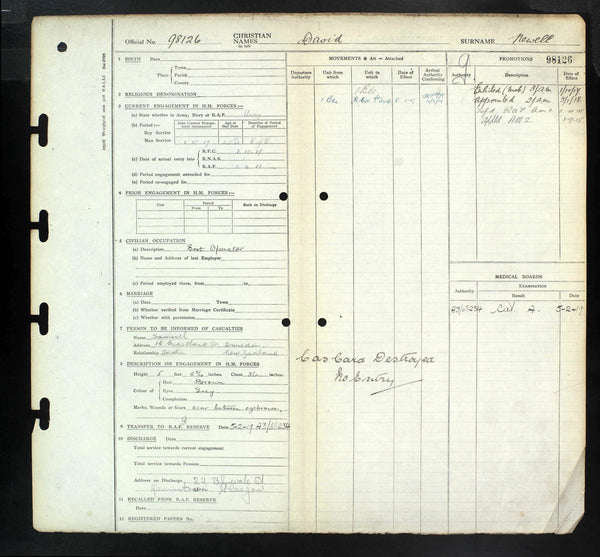 Official No. 98126 CHRISTIAN NAMES In full David SURNAME Newell
1 BIRTH Date
Town
Place Parish
County
2 RELIGIOUS DENOMINATION
3 CURRENT ENGAGEMENT IN H.M. FORCES:—
(a) State whether in Army, Navy or R.A.F. Army
(b) Period:—
Date Current Engagement commenced Age at that Date Duration of Engagement
Boy Service
Man Service
(c) Date of actual entry into R.F.C.
R.N.A.S.
R.A.F. 1.4.18
(d) Period engagement extended for
(e) Period re-engaged for
4 PRIOR ENGAGEMENT IN H.M. FORCES:—
Unit Period Rank on Discharge
From To
5 CIVILIAN OCCUPATION
(a) Description Boot Operator
(b) Name and Address of last Employer
(c) Period employed there, from to
6 MARRIAGE
(a) Date Town
(b) Whether verified from Marriage Certificate
(c) Whether with permission
7 PERSON TO BE INFORMED OF CASUALTIES
Name Samuel
Address Dunedin,
Relationship Father New Zealand
8 DESCRIPTION ON ENGAGEMENT IN H.M. FORCES
Height 5 feet inches. Chest 36 inches.
Hair Brown
Colour of Eyes Grey
Complexion
Marks, Wounds or Scars scar between eyebrows.
9 TRANSFER TO R.A.F. RESERVE G Date 5-2-19 A3/65234
10 DISCHARGE Date
Total service towards current engagement
Total service towards Pension
Address on Discharge 22 St
Glasgow
11 RECALLED FROM R.A.F. RESERVE
Date
12 REGISTERED PAPERS No.
MOVEMENTS & Att = Attached
Departure Authority Unit from which Unit to which Date of Effect Arrival Authority Confirming
1 Bde
1 Bde
Cas Card Destroyed
No Entry
9 PROMOTIONS 98126
Authority Description Date of Effect
Enlisted (mob) 3/am 1/10/17
Appointed 2/am 1/1/18
MEDICAL BOARDS
Authority EXAMINATION
Result Date
A3/65234 Cat. A. 5-2-19